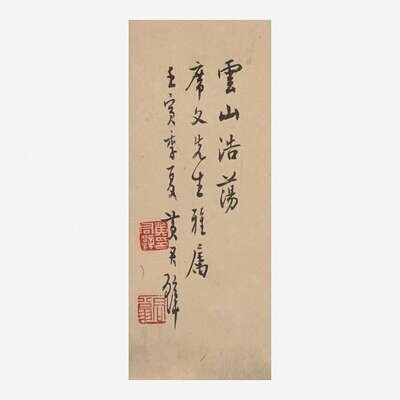 雲山浩蕩
席文先生雅屬
壬寅季夏黃君璧